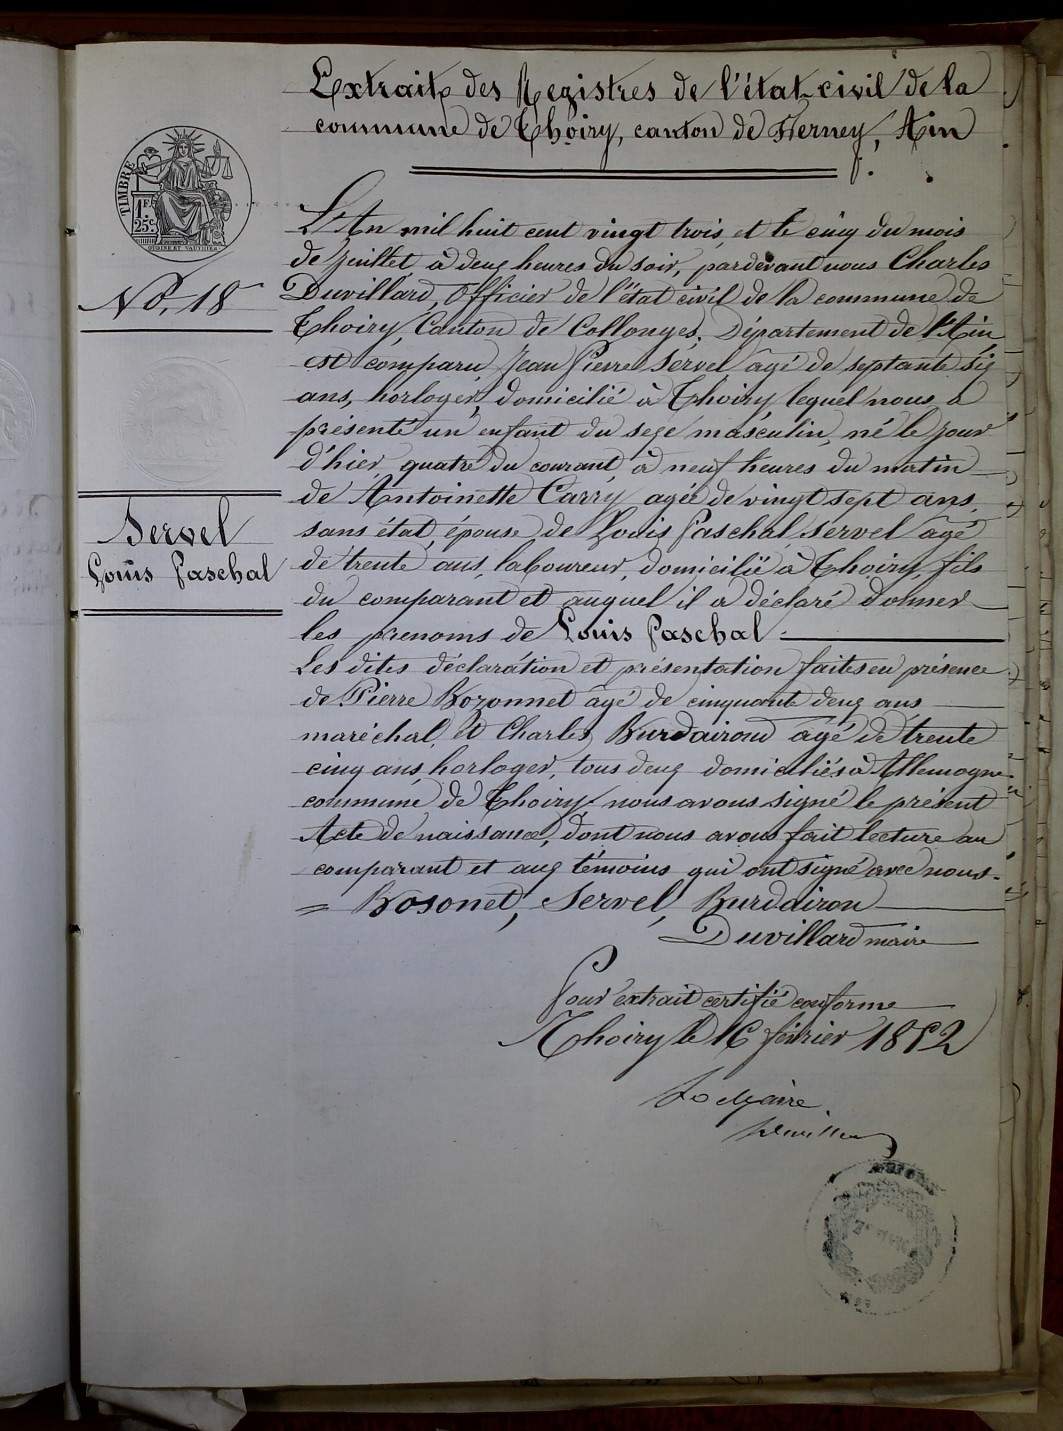 Extrait des Registres de l'état-civil de la
commune de Thoiry, canton de Ferney, Ain
TIMBRE
1 F.
25 c.
No. 18
Servel
Louis Paschal
L'An mil huit cent vingt trois, et le cinq du mois
de juillet, à deux heures du soir, pardevant nous Charles
Duvillard, Officier de l'état civil de la commune de
Thoiry, Canton de Collonges, Département de l'Ain
est comparu Jean Pierre Servel agé de septante six
ans, horloger, domicilié à Thoiry, lequel nous a
présenté un enfant du sexe masculin, né le jour
d'hier, quatre du courant, à neuf heures du matin
de Antoinette Carry, agée de vingt sept ans,
sans état, épouse de Louis Paschal Servel agé
de trente ans, laboureur, domicilié à Thoiry, fils
du comparant et auquel il a déclaré donner
les prenoms de Louis Paschal.
Les dites déclaration et présentation faites en présence
de Pierre Bozonnet agé de cinquante deux ans
maréchal, et Charles Burdairon agé de trente
cinq ans, horloger, tous deux domiciliés à Allemogne
commune de Thoiry. nous avons signé le présent
Acte de naissance, dont nous avons fait lecture au
comparant et aux témoins qui ont signé avec nous.
= Bosonet, Servel, Burdairon
Duvillard maire
Pour extrait certifié conforme
Thoiry le 16 février 1852
Le Maire